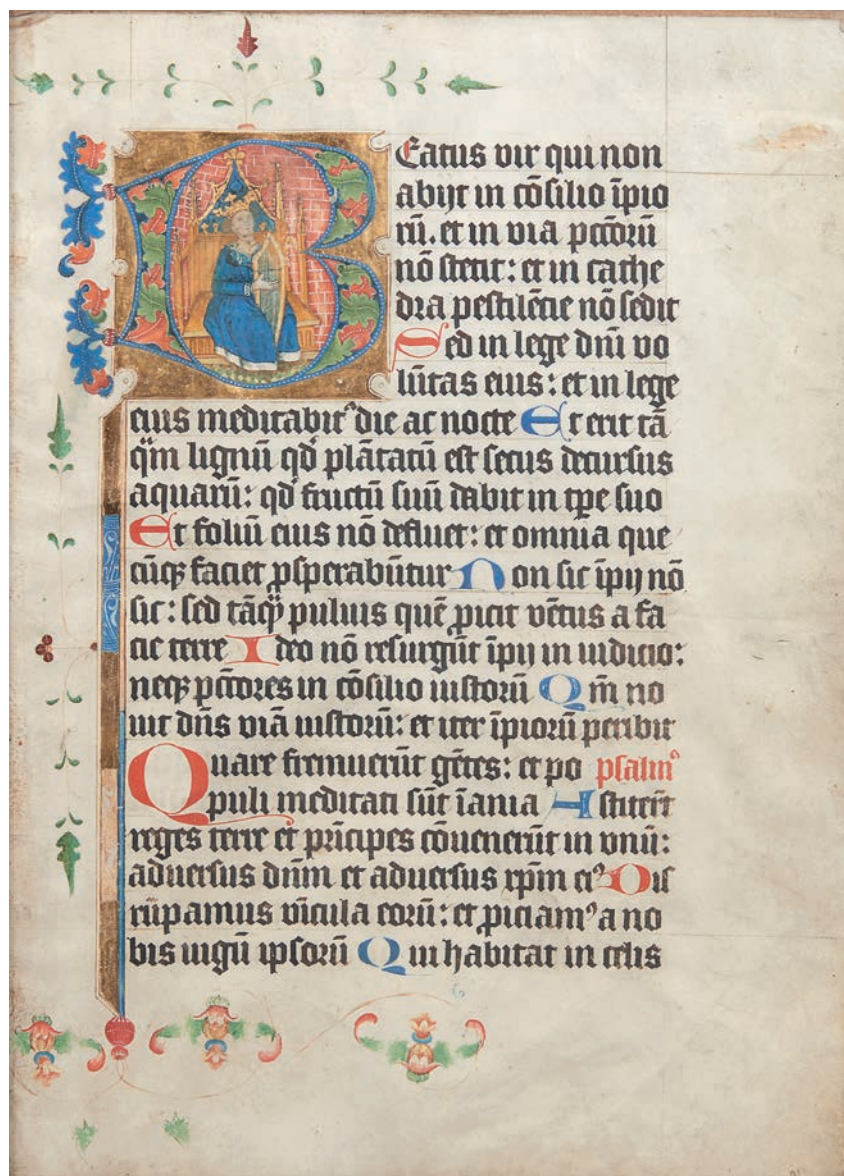 Beatus vir qui non
abijt in cōsilio īpio
rū. et in via pctorū
nō stetit: et in cathe
dra pestilētie nō sedit
Sed in lege dnī vo
lūtas eius: et in lege
eius meditabit᷑ die ac nocte Et erit tā
qͣm lignū qd̕ plātatū est secus decursus
aquarū: qd̕ fructū suū dabit in tp̄e suo
Et foliū eius nō defluet: et omnia que
cūqꝫ faciet ꝓsperabūtur Non sic īpij nō
sic: sed tāqͣꝫ puluis quē ꝓicit vētus a fa
cie terre Ideo nō resurgūt īpij in iudicio:
neqꝫ pctōres in cōsilio iustorū Qm̄ no
uit dn̄s viā iustorū: et iter īpiorū peribit
Quare fremuerūt gētes: et po psalmꝰ
puli meditati sūt īania Astiterūt
reges terre et prīcipes cōuenerūt in vnū:
aduersus dn̄m et aduersus xp̄m eiꝰ Dis
rūpamus vīcula eorū: et ꝓiciamꝰ a no
bis iugū ipsorū Qui habitat in celis